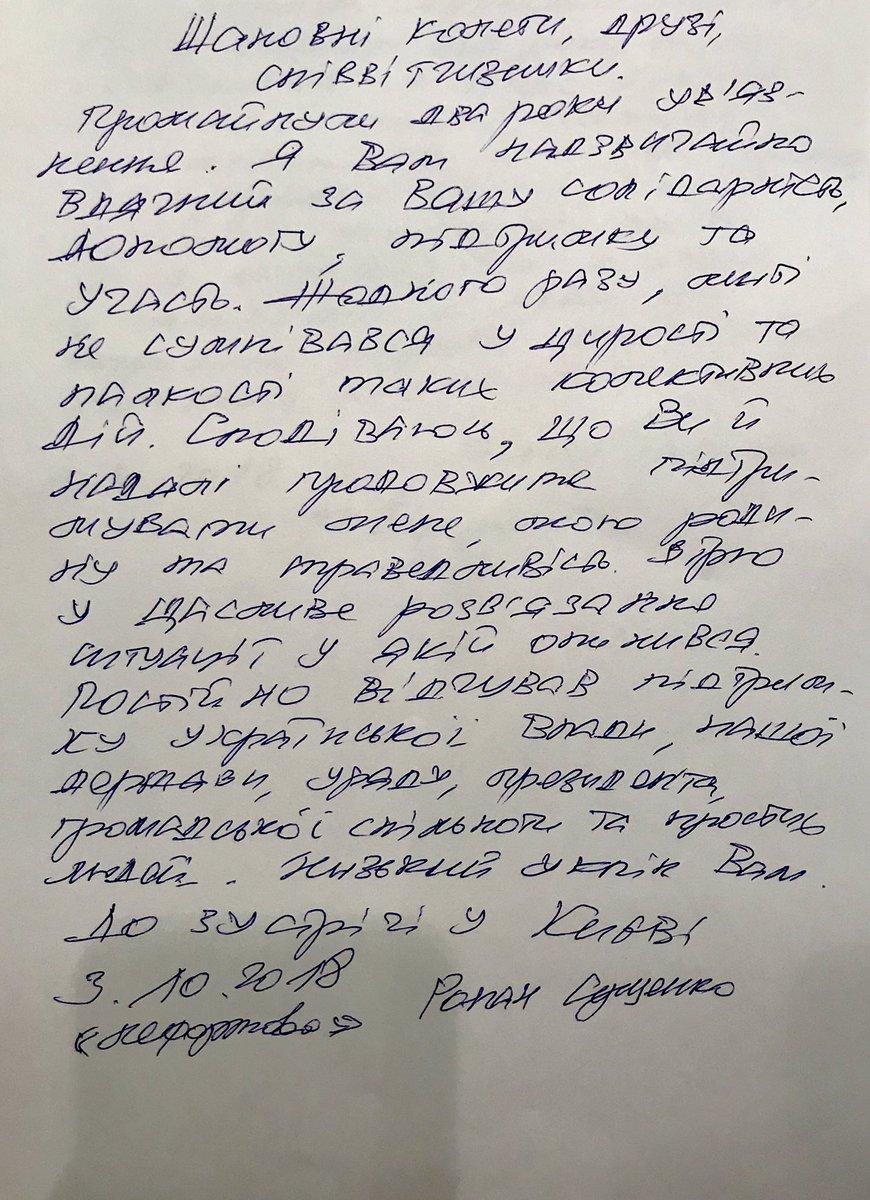 Шановні колеги, друзі,
співвітчизники.
Промайнули два роки ув'яз-
нення. Я Вам надзвичайно
вдячний за Вашу солідарність,
допомогу, підтримку та
участь. Жодного разу, миті
не сумнівався у щирості та
палкості таких колективних
дій. Сподіваюсь, що Ви й
надалі продовжите підтри-
мувати мене, мою роди-
ну та справедливість. Вірю
у щасливе розв'язання
ситуації у якій опинився.
Постійно відчував підтрим-
ку української влади, нашої
держави, уряду, президента,
громадської спільноти та простих
людей. Низький уклін Вам.
До зустрічі у Києві
3.10.2018 Роман Сущенко
«Лефортово»